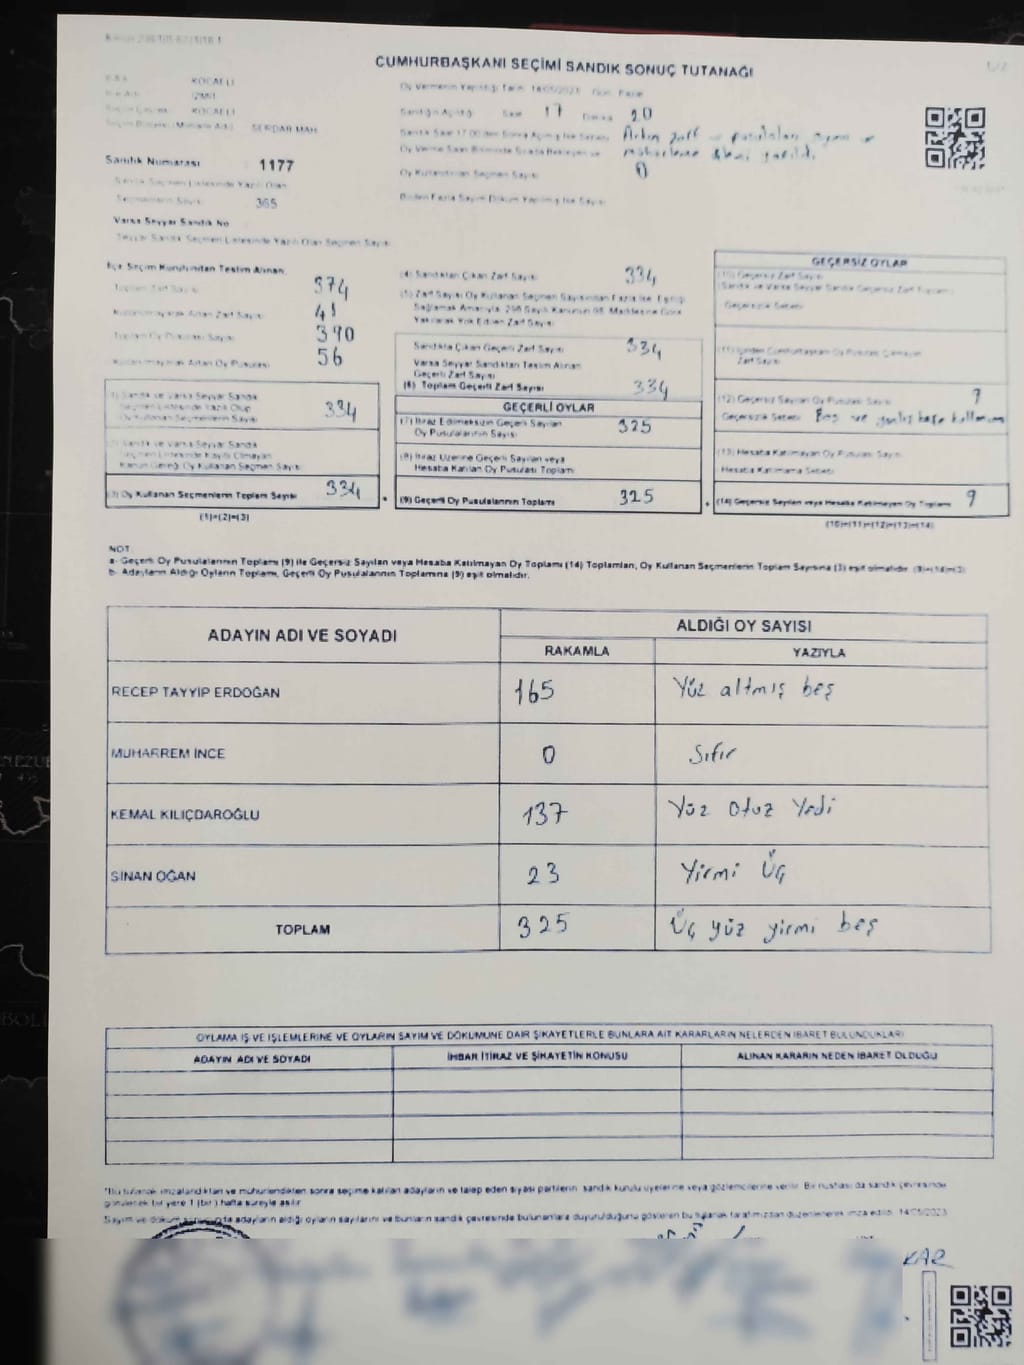 CUMHURBAŞKANI SEÇİMİ SANDIK SONUÇ TUTANAĞI
1/2
KOCAELİ
İZMİT
KOCAELİ
SERDAR MAH.
Sandık Numarası 1177
Sandık Seçmen Listesinde Yazılı Olan
Seçmenlerin Sayısı 365
Varsa Seyyar Sandık No
Seyyar Sandık Seçmen Listesinde Yazılı Olan Seçmen Sayısı
Oy Vermenin Yapıldığı Tarih 14/05/2023 Gün Pazar
Sandığın Açıldığı Saat 17 Dakika 20
Sandık Saat 17.00'den Sonra Açılmış İse Sebebi Artan zarf ve pusulaları sayımı ve
mühürleme işlemi yapıldı.
Oy Kullandırılan Seçmen Sayısı 0
Birden Fazla Sayım Döküm Yapılmış İse Sayısı
İlçe Seçim Kurulundan Teslim Alınan
Toplam Zarf Sayısı 374
Kullanılmayarak Artan Zarf Sayısı 41
Toplam Oy Pusulası Sayısı 390
Kullanılmayarak Artan Oy Pusulası 56
(1) Sandık ve Varsa Seyyar Sandık
Seçmen Listesinde Yazılı Olup
Oy Kullanan Seçmenlerin Sayısı 334
(2) Sandık ve Varsa Seyyar Sandık
Seçmen Listesinde Kayıtlı Olmayan
Kanun Gereği Oy Kullanan Seçmen Sayısı
(3) Oy Kullanan Seçmenlerin Toplam Sayısı 334
(1)+(2)=(3)
(4) Sandıktan Çıkan Zarf Sayısı 334
(5) Zarf Sayısı Oy Kullanan Seçmen Sayısından Fazla İse, Eşitliği
Sağlamak Amacıyla, 298 Sayılı Kanunun 98. Maddesine Göre
Yakılarak Yok Edilen Zarf Sayısı
Sandıkta Çıkan Geçerli Zarf Sayısı 334
Varsa Seyyar Sandıktan Teslim Alınan
Geçerli Zarf Sayısı
(6) Toplam Geçerli Zarf Sayısı 334
GEÇERLİ OYLAR
(7) İtiraz Edilmeksizin Geçerli Sayılan
Oy Pusulalarının Sayısı 325
(8) İtiraz Üzerine Geçerli Sayılan veya
Hesaba Katılan Oy Pusulası Toplamı
(9) Geçerli Oy Pusulalarının Toplamı 325
GEÇERSİZ OYLAR
(10) Geçersiz Zarf Sayısı
(Sandık ve Varsa Seyyar Sandık Geçersiz Zarf Toplamı)
Geçersizlik Sebebi
(11) İçinden Cumhurbaşkanı Oy Pusulası Çıkmayan
Zarf Sayısı
(12) Geçersiz Sayılan Oy Pusulası Sayısı 9
Geçersizlik Sebebi Boş ve yanlış kaşe kullanımı
(13) Hesaba Katılmayan Oy Pusulası Sayısı
Hesaba Katılmama Sebebi
(14) Geçersiz Sayılan veya Hesaba Katılmayan Oy Toplamı 9
(10)+(11)+(12)+(13)=(14)
NOT
a- Geçerli Oy Pusulalarının Toplamı (9) ile Geçersiz Sayılan veya Hesaba Katılmayan Oy Toplamı (14) Toplamları, Oy Kullanan Seçmenlerin Toplam Sayısına (3) eşit olmalıdır. (9)+(14)=(3)
b- Adayların Aldığı Oyların Toplamı, Geçerli Oy Pusulalarının Toplamına (9) eşit olmalıdır.
ADAYIN ADI VE SOYADI ALDIĞI OY SAYISI
RAKAMLA YAZIYLA
RECEP TAYYİP ERDOĞAN 165 Yüz altmış beş
MUHARREM İNCE 0 Sıfır
KEMAL KILIÇDAROĞLU 137 Yüz Otuz Yedi
SİNAN OĞAN 23 Yirmi Üç
TOPLAM 325 Üç yüz yirmi beş
OYLAMA İŞ VE İŞLEMLERİNE VE OYLARIN SAYIM VE DÖKÜMÜNE DAİR ŞİKAYETLERLE BUNLARA AİT KARARLARIN NELERDEN İBARET BULUNDUKLARI
ADAYIN ADI VE SOYADI İHBAR İTİRAZ VE ŞİKAYETİN KONUSU ALINAN KARARIN NEDEN İBARET OLDUĞU
*Bu tutanak imzalandıktan ve mühürlendikten sonra seçime katılan adayların ve talep eden siyasi partilerin, sandık kurulu üyelerine veya gözlemcilerine verilir. Bir nüshası da sandık çevresinde
görülecek bir yere 1 (bir) hafta süreyle asılır.
Sayım ve döküm adayların aldığı oyların sayılarını ve bunların sandık çevresinde bulunanlara duyurulduğunu gösteren bu tutanak tarafımızdan düzenlenerek imza edildi. 14/05/2023
KAR